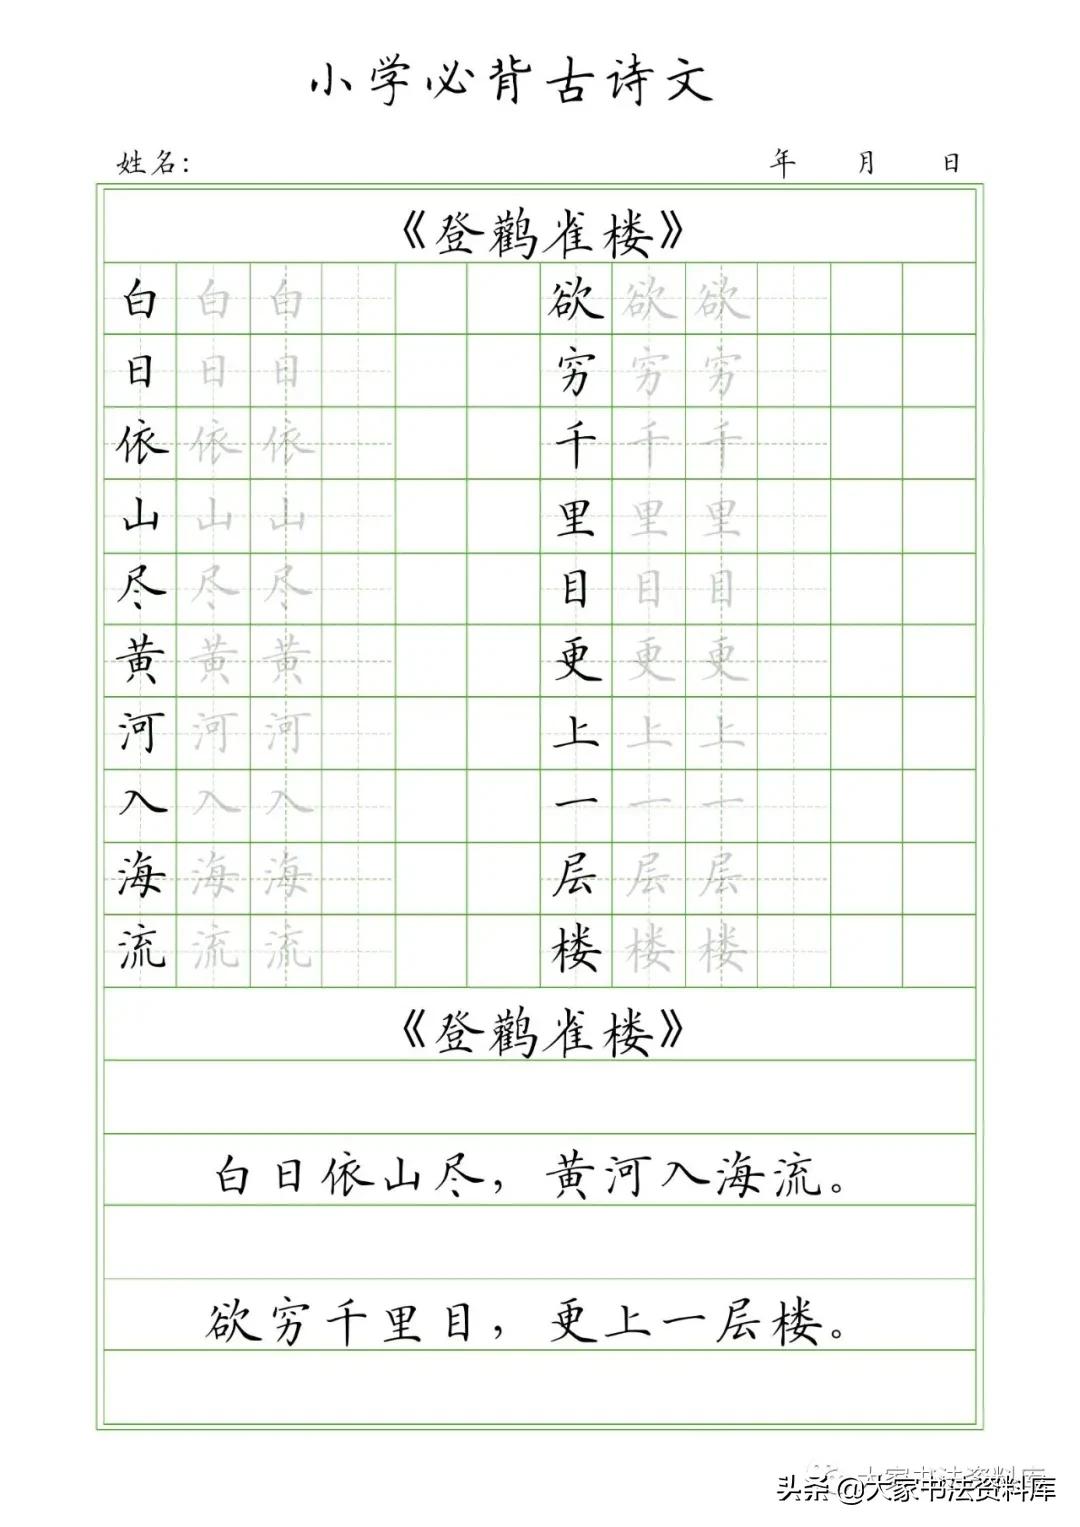 小学必背古诗文
姓名: 年 月 日
《登鹳雀楼》
白 白 白 欲 欲 欲
日 日 日 穷 穷 穷
依 依 依 千 千 千
山 山 山 里 里 里
尽 尽 尽 目 目 目
黄 黄 黄 更 更 更
河 河 河 上 上 上
入 入 入 一 一 一
海 海 海 层 层 层
流 流 流 楼 楼 楼
《登鹳雀楼》
白日依山尽，黄河入海流。
欲穷千里目，更上一层楼。
大家书法资料库
头条 @大家书法资料库